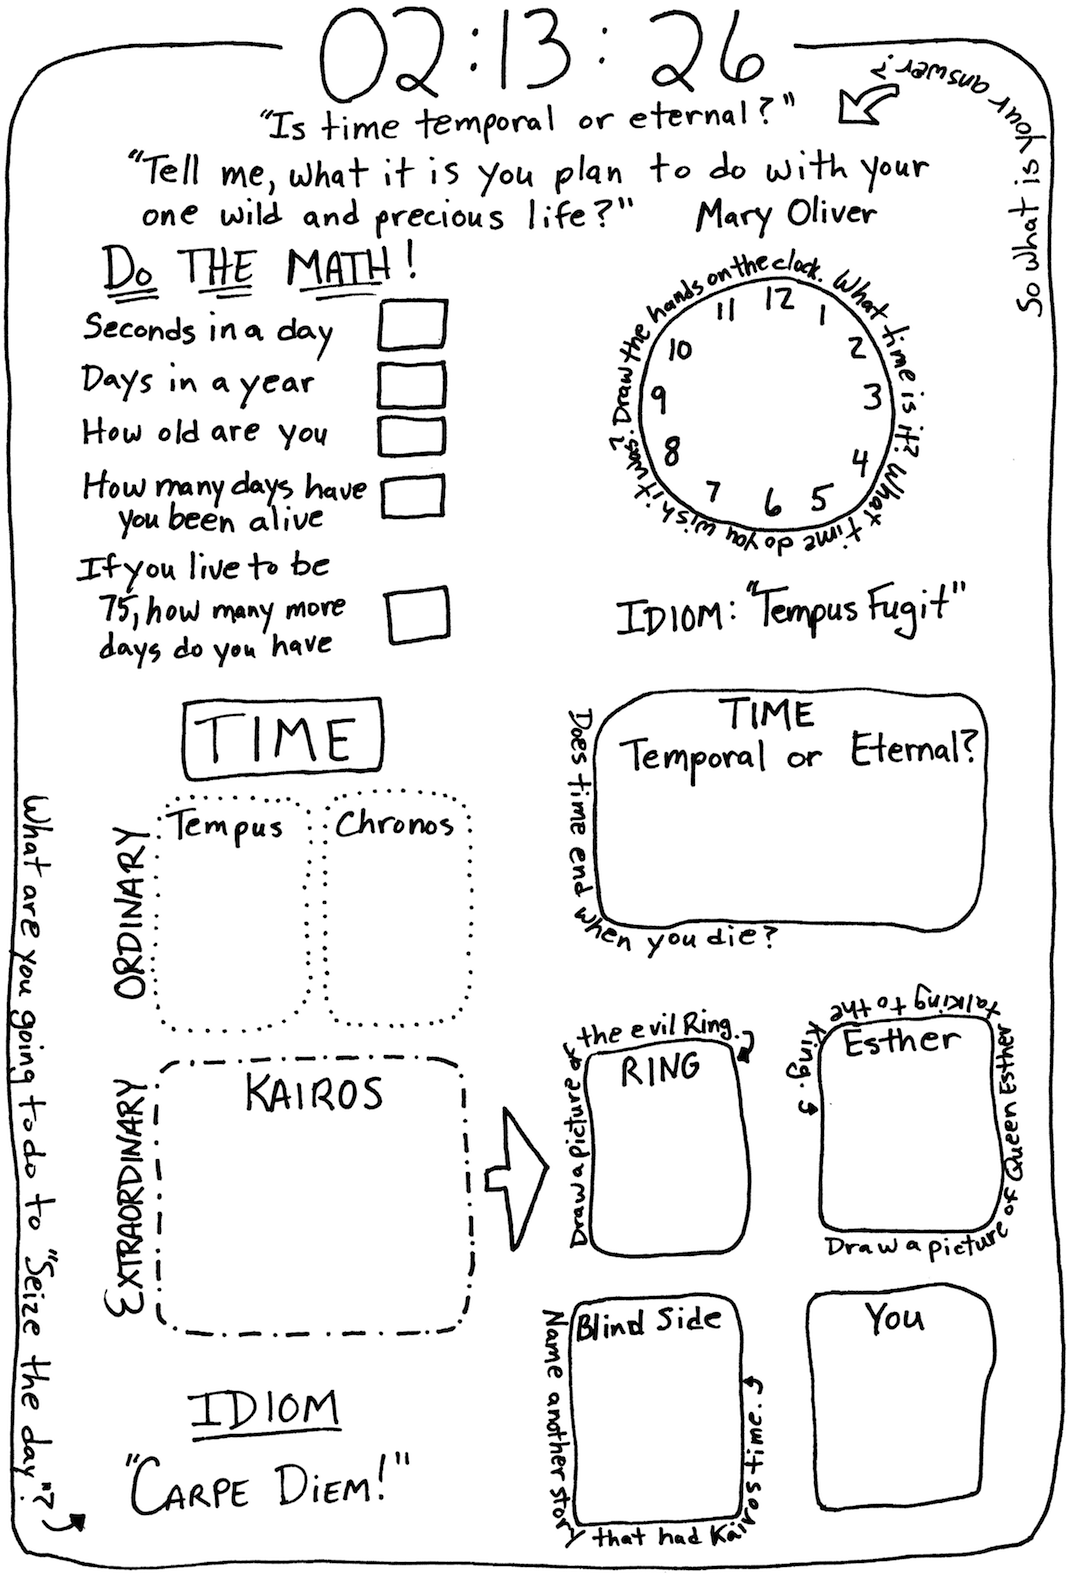 02:13:26
"Is time temporal or eternal?"
So what is your answer?
"Tell me, what it is you plan to do with your
one wild and precious life?" Mary Oliver
Do THE MATH!
Seconds in a day
Days in a year
How old are you
How many days have
you been alive
If you live to be
75, how many more
days do you have
Draw the hands on the clock. What time is it? What time do you wish it was?
12
1
2
3
4
5
6
7
8
9
10
11
IDIOM: "Tempus Fugit"
TIME
ORDINARY
Tempus
Chronos
EXTRAORDINARY
KAIROS
TIME
Temporal or Eternal?
Does time end when you die?
Draw a picture of the evil Ring.
RING
Draw a picture of Queen Esther talking to the King.
Esther
Blind Side
Name another story that had Kairos time.
You
IDIOM
"CARPE DIEM!"
What are you going to do to "Seize the day"?